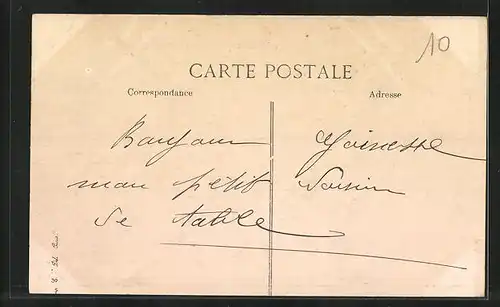 10
CARTE POSTALE
Correspondance
Adresse
Bonjour
mon petit
de table
voisin